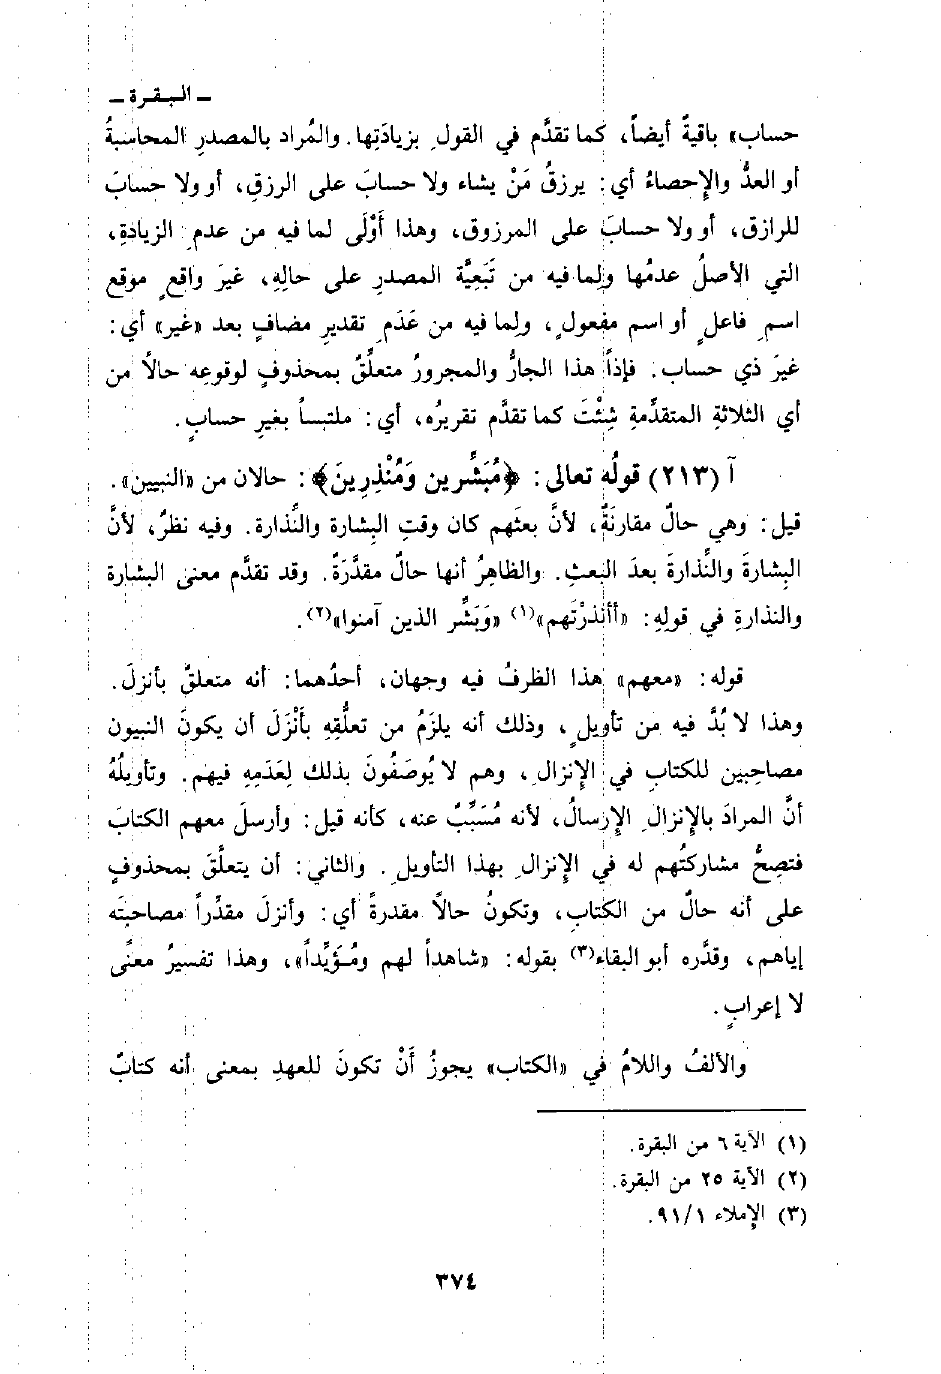 ـ البقرة ـ
حساب» باقيةٌ أيضاً، كما تقدَّم في القولِ بزيادَتِها. والمُراد بالمصدرِ المحاسبةُ
أو العدُّ والإِحصاءُ أي: يرزقُ مَنْ يشاء ولا حسابَ على الرزقِ، أو ولا حسابَ
للرازق، أو ولا حسابَ على المرزوق، وهذا أَوْلَى لما فيه من عدمِ الزيادةِ،
التي الأصلُ عدمُها ولِما فيه من تَبَعِيَّة المصدرِ على حالِهِ، غيرَ واقعٍ موقع
اسمِ فاعلٍ أو اسم مفعولٍ، ولِما فيه من عَدَمِ تقديرِ مضافٍ بعد «غير» أي:
غيرَ ذي حساب. فإذاً هذا الجارُّ والمجرورُ متعلِّقٌ بمحذوفٍ لوقوعِه حالاً من
أي الثلاثةِ المتقدِّمةِ شِئْتَ كما تقدَّم تقريرُه، أي: ملتبساً بغيرِ حسابٍ.
آ (٢١٣) قولُه تعالى: ﴿مُبَشِّرين وَمُنْذِرِينَ﴾: حالان من «النبيين».
قيل: وهي حالٌ مقارنَةٌ، لأنَّ بعثَهم كان وقتِ البِشارة والنِّذارة. وفيه نظرٌ، لأنَّ
البِشارةَ والنِّذارةَ بعدَ البعثِ. والظاهِرُ أنها حالٌ مقدَّرَةٌ. وقد تقدَّم معنى البشارة
والنذارةِ في قولِهِ: «أأنذرْتَهم»(١) «وَبَشِّر الذين آمنوا»(٢).
قوله: «معهم» هذا الظرفُ فيه وجهان، أحدُهما: أنه متعلقٌ بأنزلَ.
وهذا لا بُدَّ فيه من تأويلٍ، وذلك أنه يلزَمُ من تعلُّقِهِ بأَنْزَلَ أن يكونَ النبيون
مصاحِبين للكتابِ في الإِنزالِ، وهم لا يُوصَفُونَ بذلك لِعَدَمِهِ فيهم. وتأويلُهُ
أنَّ المرادَ بالإِنزالِ الإِرسالُ، لأنه مُسَبَّبٌ عنه، كأنه قيل: وأرسلَ معهم الكتابَ
فتصِحُّ مشاركتُهم له في الإِنزالِ بهذا التأويلِ. والثاني: أن يتعلَّقَ بمحذوفٍ
على أنه حالٌ من الكتاب، وتكونُ حالاً مقدرةً أي: وأنزلَ مقدِّراً مصاحبتَه
إياهم، وقدَّره أبو البقاء(٣) بقوله: «شاهداً لهم ومُؤَيِّداً»، وهذا تفسيرُ معنًى
لا إعرابٍ.
والألفُ واللامُ في «الكتاب» يجوزُ أَنْ تكونَ للعهدِ بمعنى أنه كتابٌ
(١) الآية ٦ من البقرة.
(٢) الآية ٢٥ من البقرة.
(٣) الإملاء ٩١/١.
٣٧٤